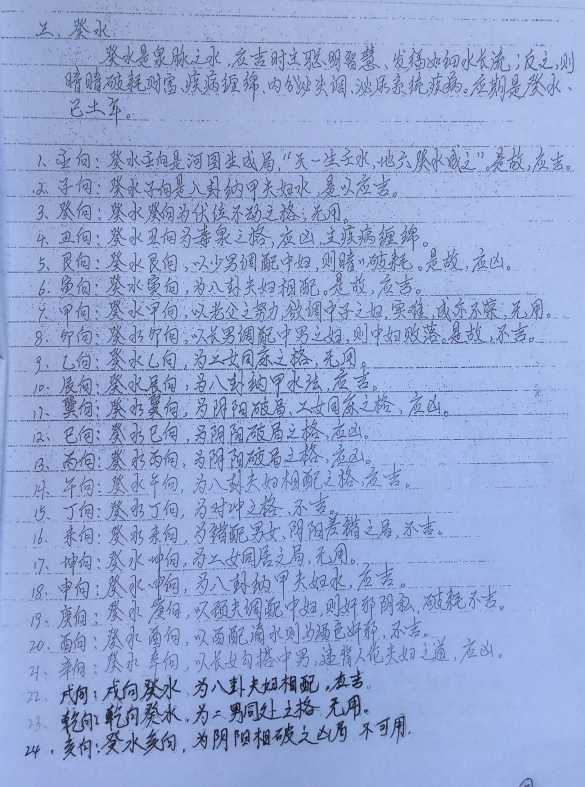 二、癸水
癸水是泉脉之水，应吉时主聪明智慧、发福如细水长流，反之，则
暗暗破耗财富、疾病缠绵、内分泌失调、泌尿系统疾病。应期是癸水、
己土年。
1、壬向：癸水壬向是河图生成局，“天一生壬水，地六癸水成之”。是故，应吉。
2、子向：癸水子向是八卦纳甲夫妇水，是以应吉。
3、癸向：癸水癸向为伏位不动之格，无用。
4、丑向：癸水丑向为毒泉之格，应凶，主疾病缠绵。
5、艮向：癸水艮向，以少男调配中妇，则暗暗破耗。是故，应凶。
6、寅向：癸水寅向，为八卦夫妇相配。是故，应吉。
7、甲向：癸水甲向，以老父之努力，欲调中子之妇，实难，成亦不荣，无用。
8、卯向：癸水卯向，以长男调配中男之妇，则中妇败落。是故，不吉。
9、乙向：癸水乙向，为二女同床之格，无用。
10、辰向：癸水辰向，为八卦纳甲水法，应吉。
11、巽向：癸水巽向，为阴阳破局、二女同床之格，应凶。
12、巳向：癸水巳向，为阴阳破局之格，应凶。
13、丙向：癸水丙向，为阴阳破局之格，应凶。
14、午向：癸水午向，为八卦夫妇相配之格，应吉。
15、丁向：癸水丁向，为对冲之格，不吉。
16、未向：癸水未向，为错配男女，阴阳差错之局，不吉。
17、坤向：癸水坤向，为二女同居之局，无用。
18、申向：癸水申向，为八卦纳甲夫妇水，应吉。
19、庚向：癸水庚向，以颈夫调配中妇，则奸邪阴私，破耗不吉。
20、酉向：癸水酉向，以酉配滴水则为酒色奸邪，不吉。
21、辛向：癸水辛向，以长女勾搭中男，违背人伦夫妇之道，应凶。
22、戌向：戌向癸水，为八卦夫妇相配，应吉。
23、乾向：乾向癸水，为二男同处之格 无用。
24、亥向：癸水亥向，为阴阳相破之凶局 不可用.